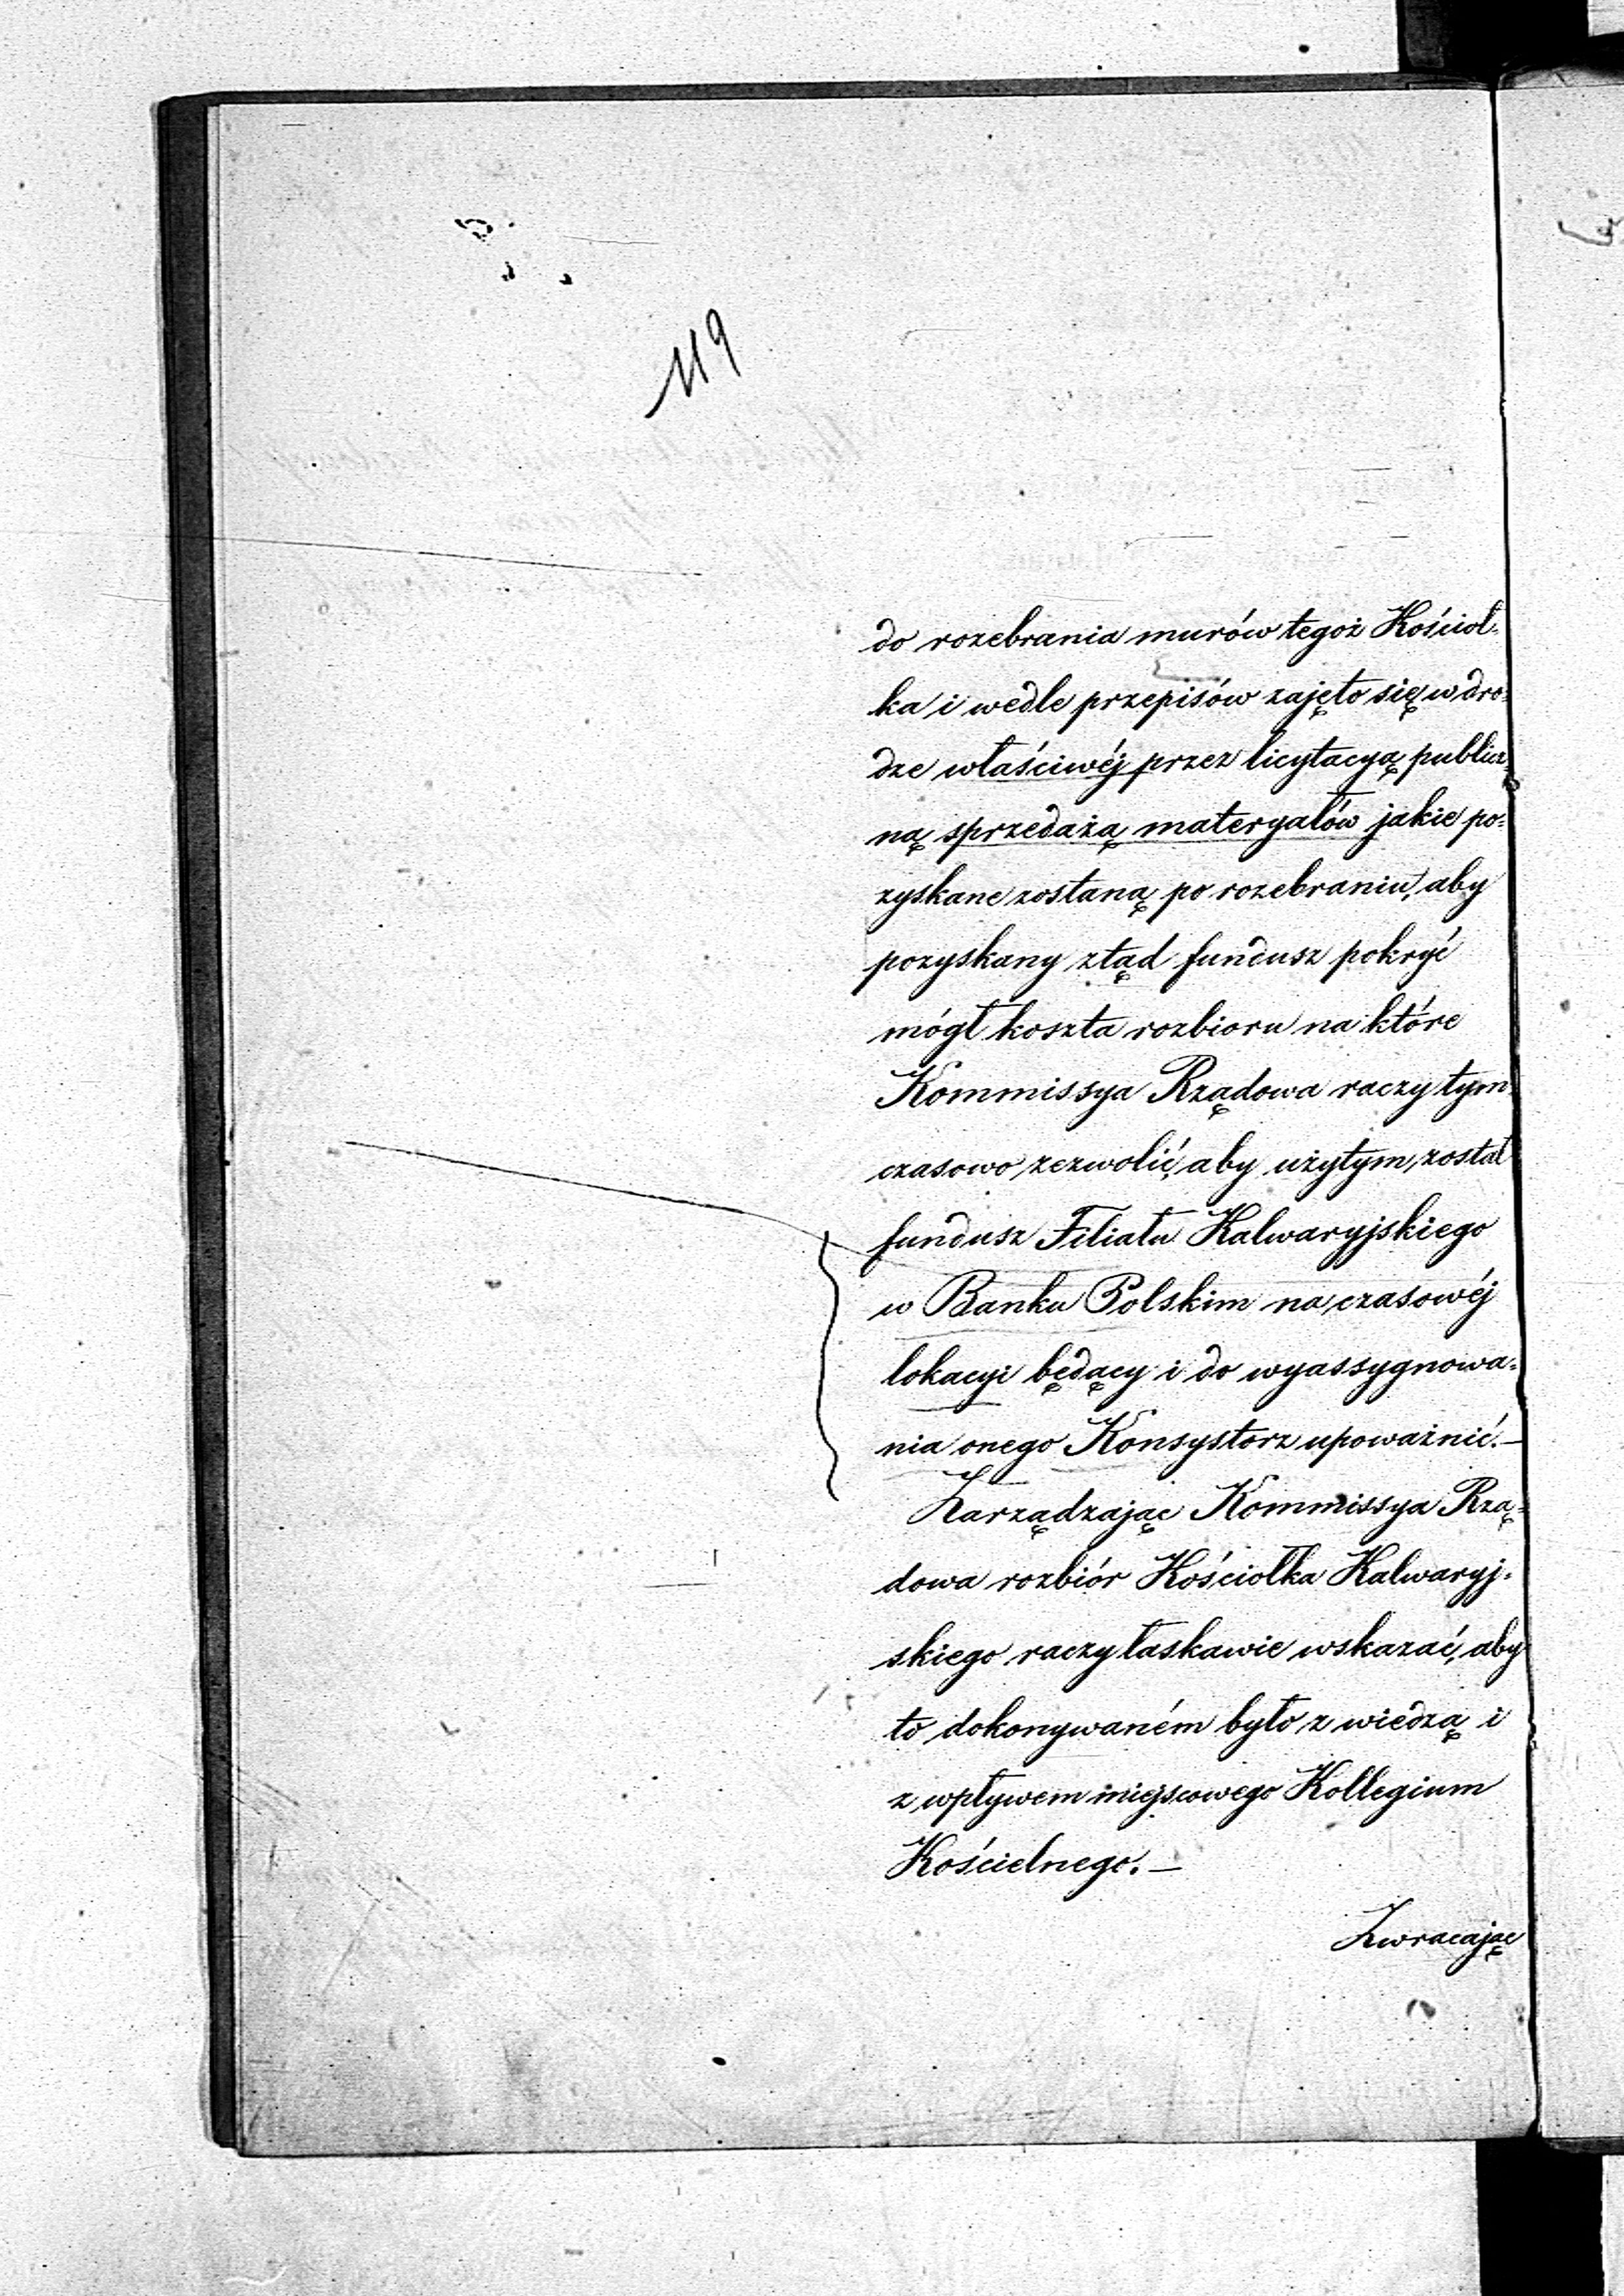 119
do rozebrania murów tegoż Kościoł-
ka i wedle przepisów zajęto się w dro-
dze właściwéj przez licytacyą publicz-
ną sprzedażą materyałów jakie po-
zyskane zostaną po rozebraniu, aby
pozyskany ztąd fundusz pokryć
mógł koszta rozbioru na które
Kommissya Rządowa raczy tym-
czasowo zezwolić, aby użytym został
fundusz Filiału Kalwaryjskiego
w Banku Polskim na czasowéj
lokacyi będący i do wyassygnowa-
nia onego Konsystorz upoważnić.—
Zarządzając Kommissya Rzą-
dowa rozbiór Kościołka Kalwaryj-
skiego raczy łaskawie wskazać, aby
to dokonywaném było z wiedzą i
z wpływem miejscowego Kollegium
Kościelnego.—
Zwracając